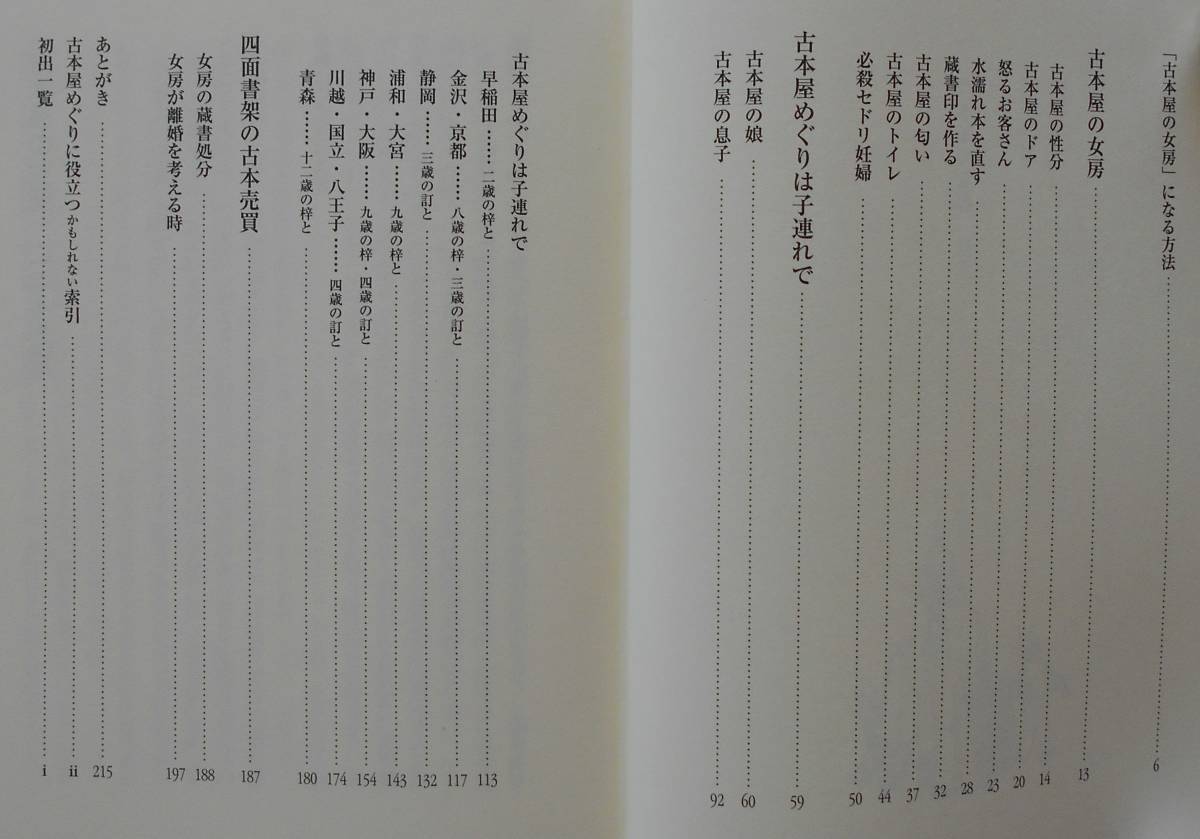 「古本屋の女房」になる方法……6
古本屋の女房……13
古本屋の性分……14
古本屋のドア……20
怒るお客さん……23
水濡れ本を直す……28
蔵書印を作る……32
古本屋の匂い……37
古本屋のトイレ……44
必殺セドリ妊婦……50
古本屋めぐりは子連れで……59
古本屋の娘……60
古本屋の息子……92
古本屋めぐりは子連れで
早稲田……二歳の梓と……113
金沢・京都……八歳の梓・三歳の訂と……117
静岡……三歳の訂と……132
浦和・大宮……九歳の梓と……143
神戸・大阪……九歳の梓・四歳の訂と……154
川越・国立・八王子……四歳の訂と……174
青森……十二歳の梓と……180
四面書架の古本売買……187
女房の蔵書処分……188
女房が離婚を考える時……197
あとがき……215
古本屋めぐりに役立つかもしれない索引……ii
初出一覧……i